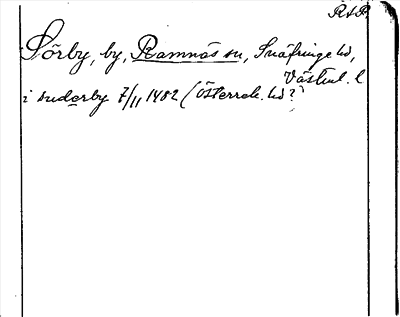 R A P
Sörby, by, Ramnäs sn, Snäfringe hd,
Västml. l
i suderby 7/11 1482 (Österrek. hd?)